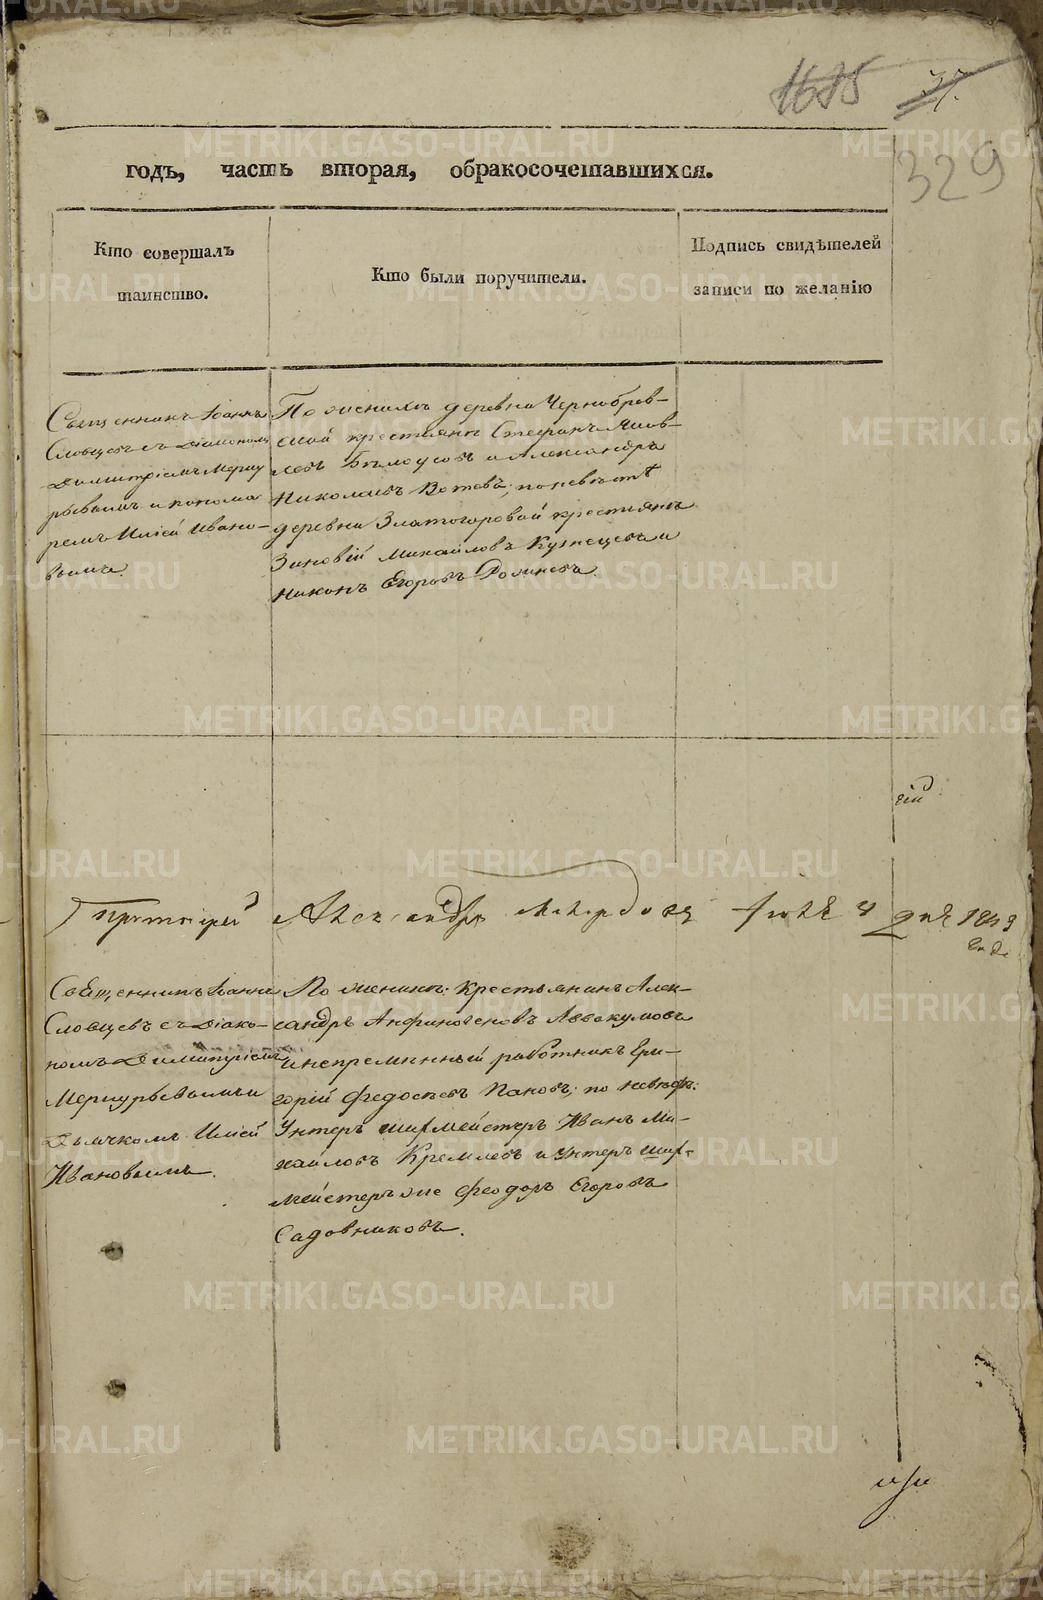 1615
37.
329
годъ, часть вторая, обракосочетавшихся.
Кто совершалъ
таинство.
Кто были поручители.
Подпись свидѣтелей
записи по желанію
Священникъ Іоаннъ
Словцевъ съ Діакономъ
Димитріемъ Мерку
рьевымъ и понома
ремъ Иліей Ивано-
вымъ.
По женихѣ деревни Чернобров-
ской крестьяне Стефанъ Яков-
левъ Бѣлоусовъ и Александръ
Николаевъ Вотевъ; по невѣстѣ
деревни Златогоровой крестьяне
Зиновій Михайловъ Кузнецовъ и
Никонъ Егоровъ Долиневъ.
Протоіерей Александръ Макар 4 дня 1849
года
Священникъ Іоаннъ
Словцевъ съ Діако-
номъ Димитріемъ
Меркурьевымъ и
Дьячкомъ Иліей
Ивановымъ.
По женихѣ: Крестьянинъ Алек-
сандръ Анфиногеновъ Аввакумовъ
и непремѣнный работникъ Гри-
горій Федосѣевъ Пановъ; по невѣстѣ:
Унтеръ шихмейстеръ Иванъ Ми-
хайловъ Кремлевъ и Унтеръ ших-
мейстеръ же Феодоръ Егоровъ
Садовниковъ.
METRIKI.GASO-URAL.RU